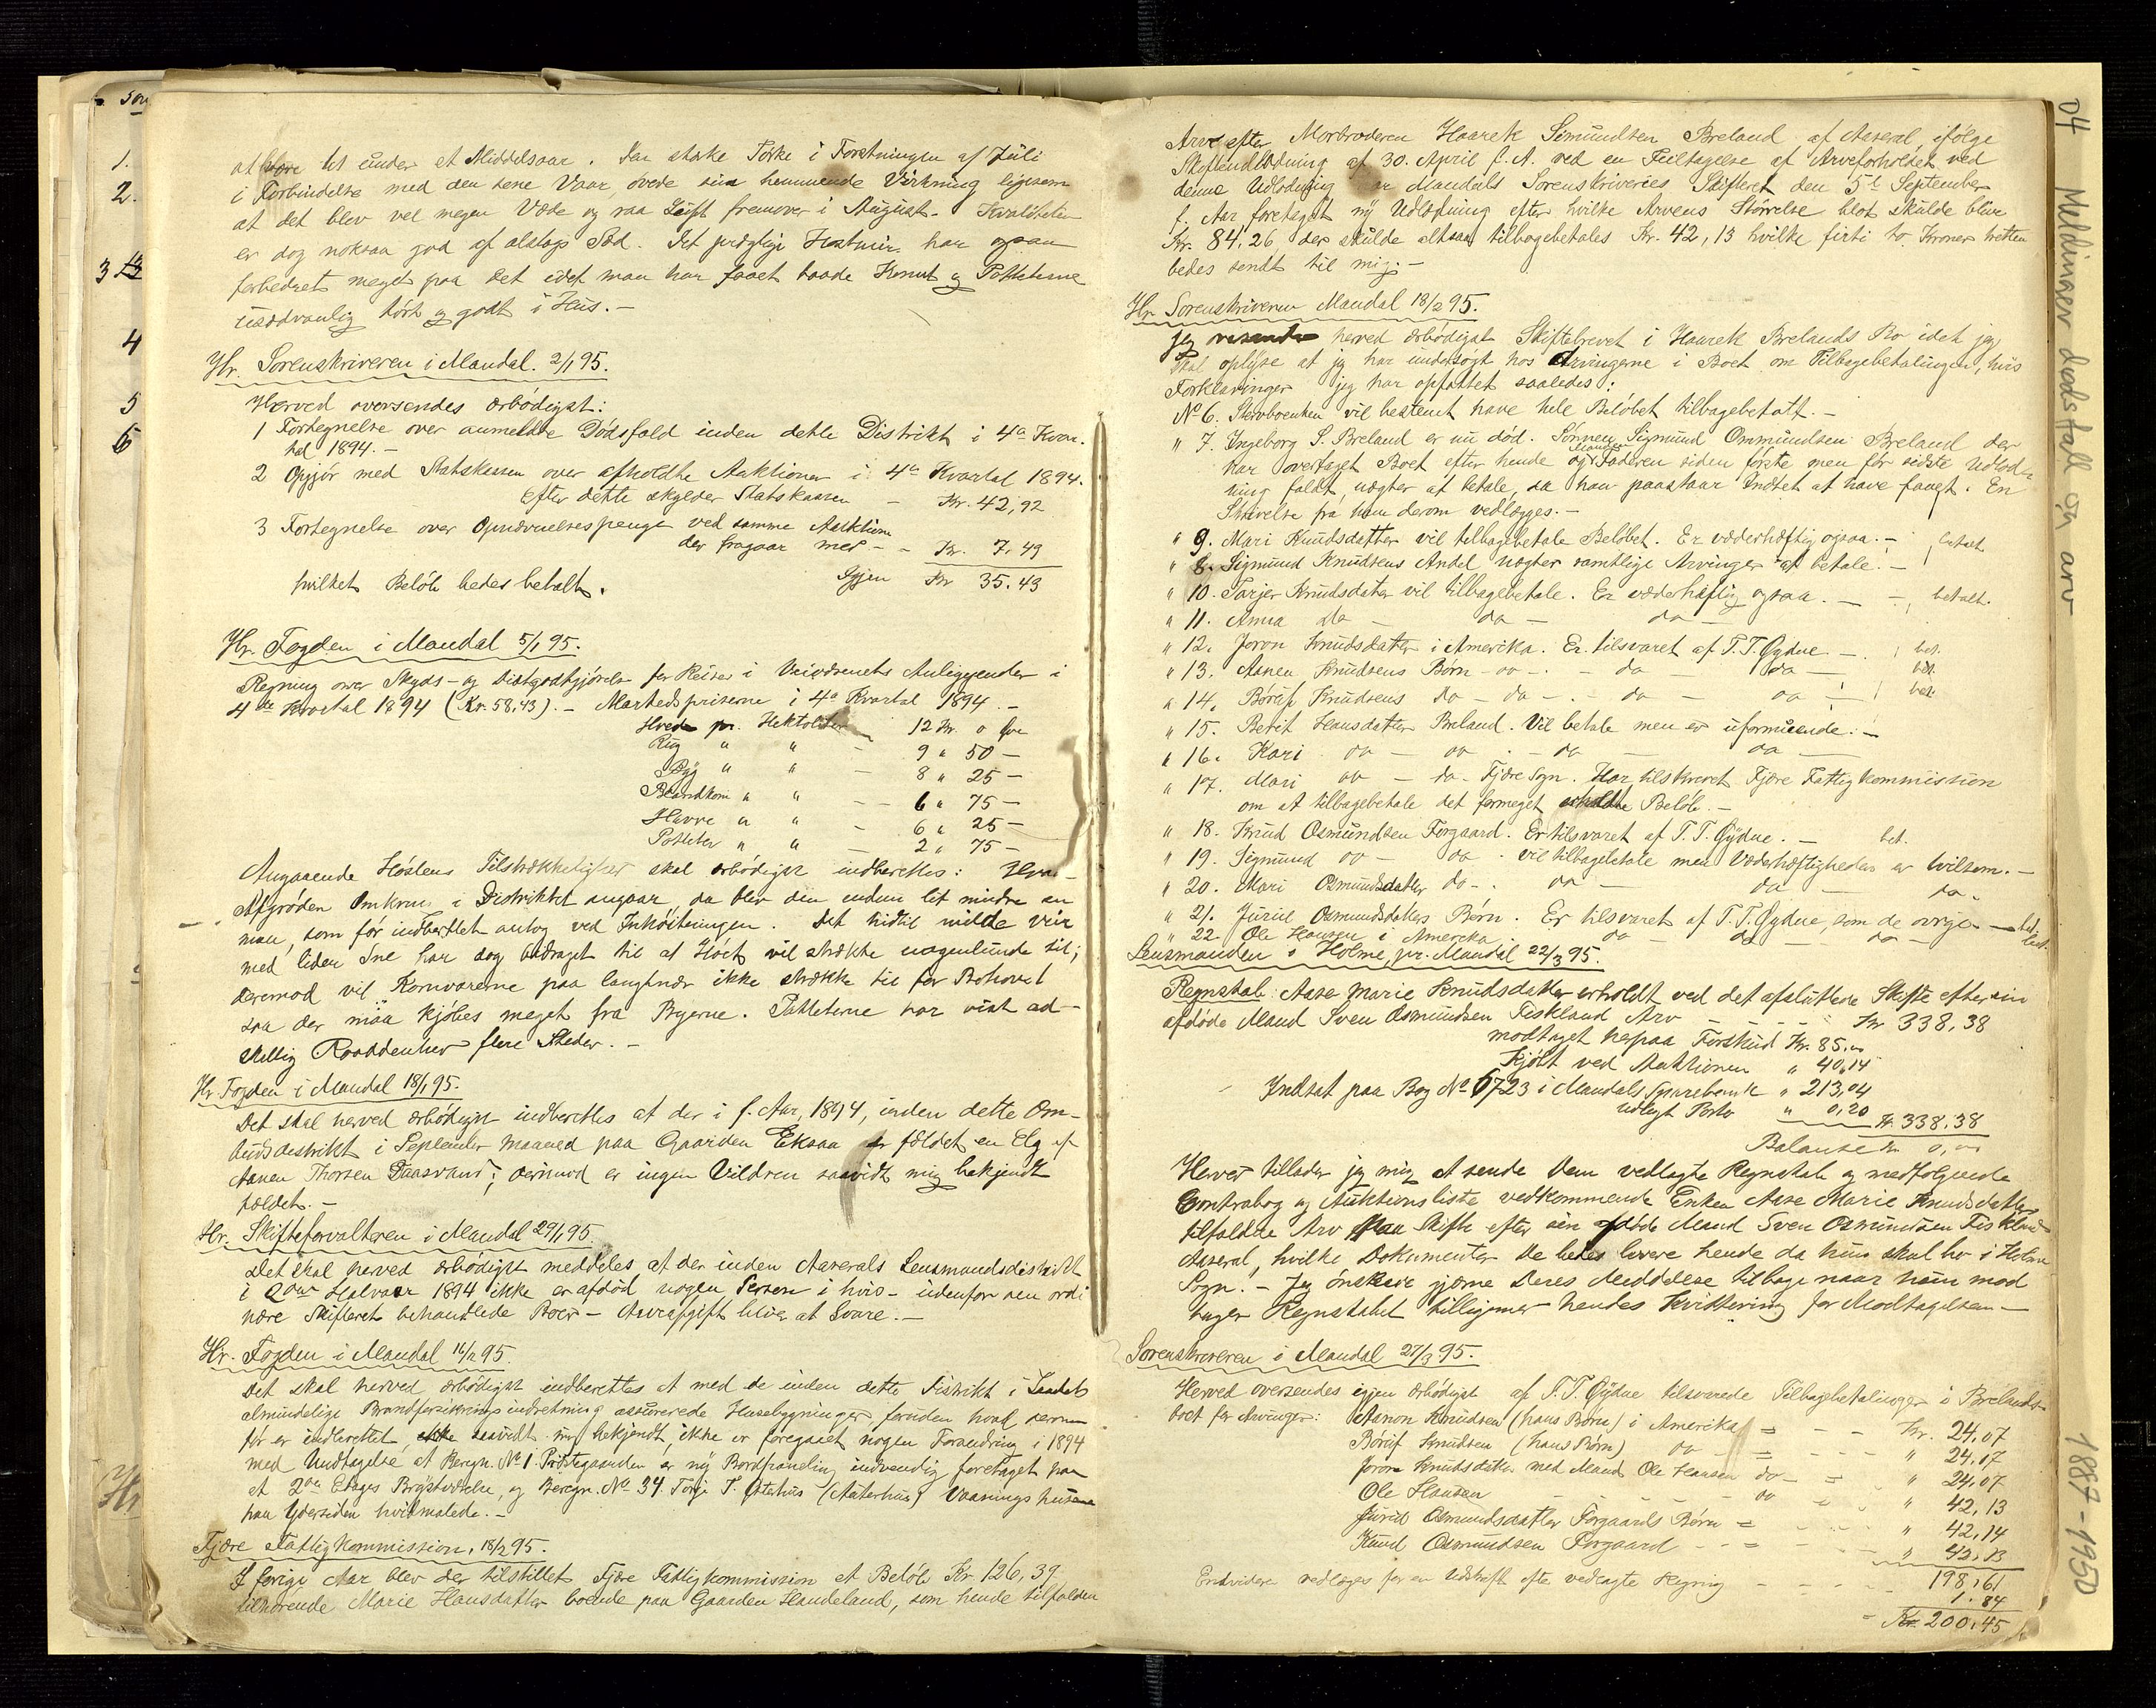 at være lit under et Middelsaar. Den stærke Tørke i Forstningen af Juli
i Forbindelse med den sene Vaar, øvede sin hemmende Virkning ligesom
at det blev vel megen Væde og raa Luft fremover i August. Kvaliteten
er dog noksaa god af alslags Sæd. Det prægtige Høstveir har ogsaa
forbedret meget paa det idet man har faaet baade Kornet og Poteterne
usædvanlig tørt og godt i Hus. -
Hr. Sorenskriveren i Mandal. 2/1 95.
Herved oversendes ærbødigst:
1 Fortegnelse over anmeldte Dødsfald inden dette Distrikt i 4de Kvar-
tal 1894. -
2 Opgjør med Statskassen over afholdte Auktioner i 4de Kvartal 1894.
Efter dette skylder Statskassen - Kr. 42,92
3 Fortegnelse over Opnævnelsespenge ved samme Auktion
der fragaar med - - Kr. 7,49
Igjen Kr 35.43
hvilket Beløb bedes betalt.
Hr. Fogden i Mandal 5/1 95.
Regning over Skyds- og Diætgodtgjørelse for Reiser i Veivæsenets Anliggender i
4de Kvartal 1894 (Kr. 58,43). - Markedspriserne i 4de Kvartal 1894. -
Hvede pr. Hektoliter 12 Kr. 0 Øre
Rug " " - 9 " 50 -
Byg " " - 8 " 25 -
Blandkorn " " - - 6 " 75 -
Havre " " - 6 " 25 -
Poteter " " - 2 " 75 -
Angaaende Høstens Tilstrækkelighed skal ærbødigst indberettes: Hvad
Afgrøden Omkring i Distriktet angaar, da blev den endnu lit mindre en
man, som før indberettet antog ved Inhøstningen. Det hidtil milde Veir
med liden Sne har dog bidraget til at Høiet vil strække nogenlunde til;
derimod vil Kornvarerne paa langtnær ikke strække til for Behovet
saa der maa kjøbes meget fra Byerne. Poteterne har vist ad-
skillig Raaddenhed flere Steder. -
Hr. Fogden i Mandal 18/1 95.
Det skal herved ærbødigst indberettes at der i f. Aar, 1894, inden dette Om-
budsdistrikt i September Maaned paa Gaarden Eksaa er fældet en Elg af
Aanen Thorsen Daasvand; derimod er ingen Vildren saavidt mig bekjendt
fældet. -
Hr. Skifteforvalteren i Mandal 29/1 95.
Det skal herved ærbødigst meddeles at der inden Aaserals Lensmandsdistrikt
i 2det Halvaar 1894 ikke er afdød nogen Person i hvis - udenfor den ordi
nære Skifteret behandlede Boer - Arveafgift bliver at svare. -
Hr. Fogden i Mandal 16/2 95.
Det skal herved ærbødigst indberettes at med de inden dette Distrikt i Landets
almindelige Brandforsikringsindretning assurerede Husebygninger, foruden hvad derom
før er indberettet, saavidt mig bekjendt, ikke er foregaaet nogen Forandring i 1894
med Undtagelse at Bergn. No 1. Prestegaarden er ny Bordpaneling indvendig foretaget paa
et 2den Etages Brystværelse, og Beregn. No 34 Torje T. Østehus (Aaterhus) Vaaningshuset
paa Ydersiden hvidmalede. -
Fjære Fattigkommission, 18/2 95.
I forige Aar blev der tilstillet Fjære Fattigkommission et Beløb Kr 126,39
tilhørende Marie Hansdatter boende paa Gaarden Haudeland, som hende tilfalden
Arv efter Morbroderen Haarek Simundsen Breland af Aaseral, ifølge
Skifteudlodning af 30. April f. A. ved en Feiltagelse af Arveforholdet ved
denne Udlodning er Mandals Sorenskriveries Skifteret den 5te September
f. Aar foretaget ny Udlodning efter hvilke Arvens Størrelse blot skulde blive
Kr. 84,26, der skulde altsaa tilbagebetales Kr. 42,13 hvilke firti to Kroner tretten
bedes sendt til mig. -
Hr. Sorenskriveren Mandal 18/2 95.
Jeg herved ærbødigst Skiftebrevet i Haarek Brelands Bo idet jeg
skal oplyse at jeg har undersøgt hos Arvingerne i Boet om Tilbagebetalingen, hvis
Forklaringer jeg har opfattet saaledes:
No 6. Stervboenken vil bestemt have hele Beløbet tilbagebetalt. -
" 7. Ingeborg S. Breland er nu død. Sønnen, Sigmund Ommundsen Breland der
har overtaget Boet efter hende og Faderen siden første men før sidste Udlod-
ning faldt, nægter at betale, da han paastaar Indtet at have faaet. En
Skrivelse fra ham derom vedlægges. -
" 9. Mari Knudsdatter vil tilbagebetale Beløbet. Er væderhæftig ogsaa. - betalt
" 8. Sigmund Knudsens Andel nægter samtlige Arvinger at betale. -
" 10. Torjer Knudsdatter vil tilbagebetale. Er væderhæftig ogsaa. - betalt.
" 11. Anna do - do - do -
" 12. Joron Knudsdatter i Amerika. Er tilsvaret af T. T. Øydne - bet.
" 13. Aanen Knudsens Børn - do - - do do - bet.
" 14. Børuf Knudsens do - do - - do - do - bet.
" 15. Berit Hansdatter Breland. Vil betale men er uformuende. -
" 16. Kari do - do - do - do -
" 17. Mari do - do - Fjære Sogn. Har tilskrevet Fjære Fattigkommission
om at tilbagebetale det formeget erholdte Beløb. -
" 18. Knud Osmundsen Forgaard. Er tilsvaret af T. T. Øydne. - bet.
" 19. Sigmund do - do - vil tilbagebetale men Væderhæftigheden er tvilsom. -
" 20. Mari Osmundsdatter do - do - do - do -
" 21. Jurid Osmundsdatters Børn. Er tilsvaret af T. T. Øydne, som de øvrige - bet.
" 22 Ole Hansen i Amerika do - do - do - bet.
Lensmanden i Holme, pr. Mandal 22/3 95.
Regnskab: Aase Marie Knudsdatter erholdt ved det afsluttede Skifte efter sin
afdøde Mand Sven Osmundsen Fiskland Arv - - - Kr 338,38
modtaget herpaa Forskud Kr. 85,00
Kjøbt ved Auktionen " 40,14
Indsat paa Bog No 6723 i Mandals Sparebank " 213,04
udlagt Porto " 0,20 Kr. 338,38
Balanse Kr 0,00
Herved tillader jeg mig at sende Dem vedlagte Regnskab og medfølgende
Contrabog og Auktionsliste vedkommende Enken Aase Marie Knudsdatter
tilfaldte Arv paa Skifte efter sin afdøde Mand Sven Osmundsen Fiskland
Aaseral, hvilke Dokumenter De bedes levere hende da hun skal bo i Holme
Sogn. - Jeg ønskede gjerne Deres Meddelelse tilbage naar hun mod
tager Regnskabet tilligemed hendes Kvittering for Modtagelsen -
Sorenskriveren i Mandal 27/3 95.
Herved oversendes igjen ærbødigst af T. T. Øydne tilsvarede Tilbagebetalinger i Brelands-
boet for Arvinger: Aanon Knudsen (hans Børn) i Amerika = - - Kr. 24,07
Børuf Knudsen (hans Børn) do - = - - " 24,07
Joron Knudsdatter med Mand Ole Hansen do - = " 24,07
Ole Hansen - - - - do - " 42,13
Jurid Osmundsdatter Forgaards Børn = - - " 42,14
Knud Osmundsen Forgaard - - = - - " 42,13
198,61
Endvidere vedlægges for en Udskrift efter vedlagte Regning - - - 1.84
Kr. 200,45
04 Meldinger dødsfall og arv 1887-1950